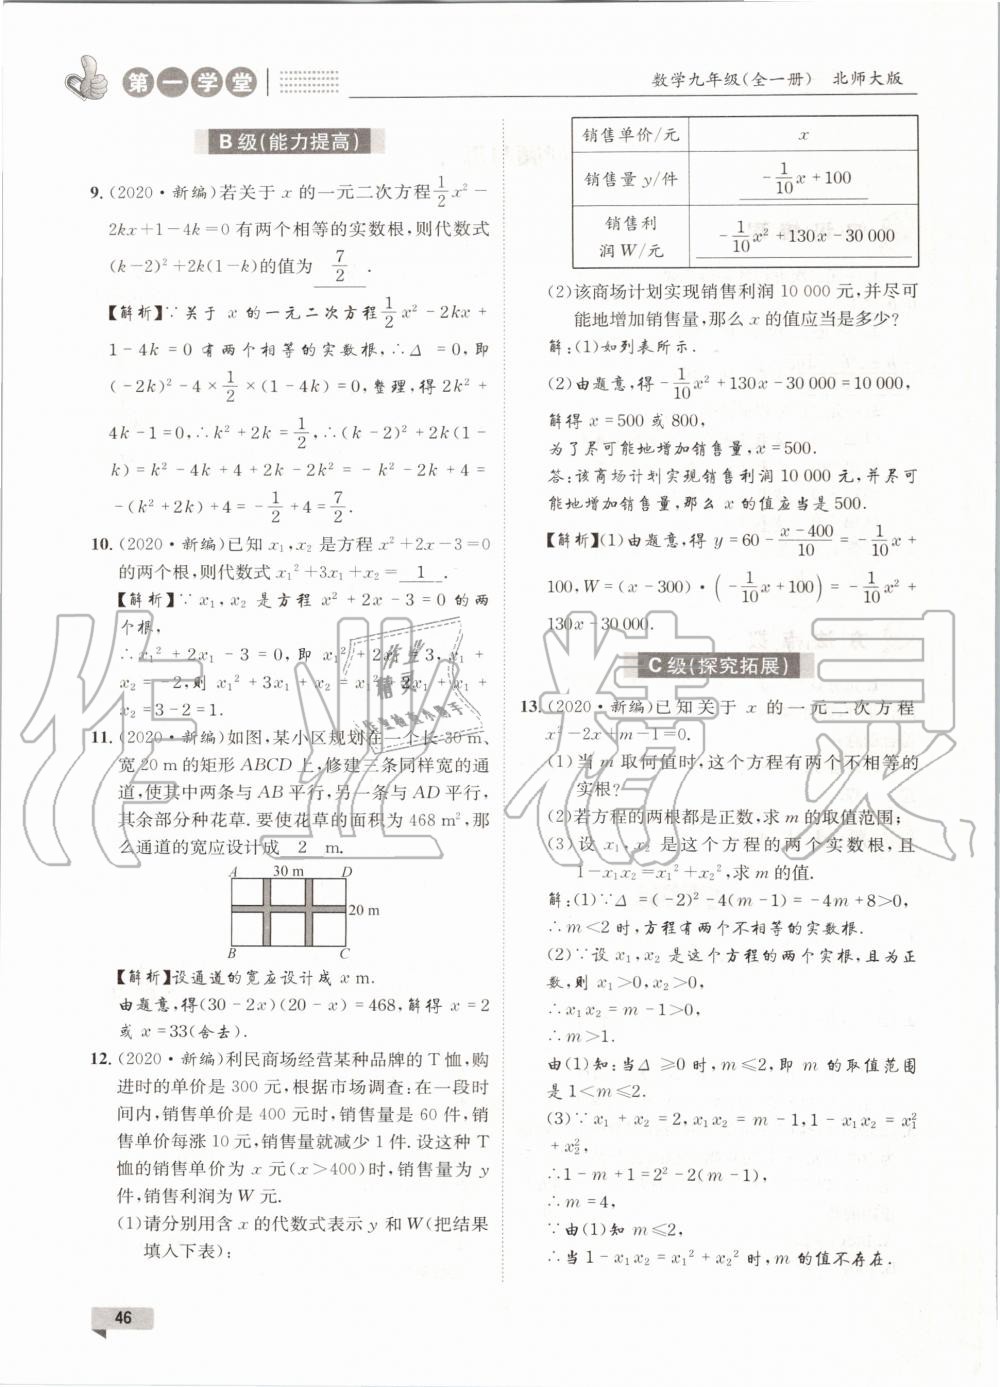 第一学堂
数学九年级(全一册) 北师大版
B级(能力提高)
9. (2020·新编)若关于 x 的一元二次方程 1/2 x² -
2kx+1-4k=0 有两个相等的实数根,则代数式
(k-2)²+2k(1-k)的值为 7/2 .
【解析】∵关于 x 的一元二次方程 1/2 x² - 2kx +
1-4k=0 有两个相等的实数根,∴Δ=0,即
(-2k)²-4×1/2×(1-4k)=0,整理,得 2k²+
4k-1=0,∴k²+2k=1/2,∴(k-2)²+2k(1-
k)=k²-4k+4+2k-2k²=-k²-2k+4=
-(k²+2k)+4=-1/2+4=7/2.
10. (2020·新编)已知 x₁,x₂ 是方程 x²+2x-3=0
的两个根,则代数式 x₁²+3x₁+x₂= 1 .
【解析】∵ x₁,x₂ 是方程 x²+2x-3=0 的两
个根,
∴x₁²+2x₁-3=0,即 x₁²+2x₁=3,x₁+
x₂=-2,则 x₁²+3x₁+x₂=x₁²+2x₁+x₁+
x₂=3-2=1.
11. (2020·新编)如图,某小区规划在一个长 30 m、
宽 20 m 的矩形 ABCD 上,修建三条同样宽的通
道,使其中两条与 AB 平行,另一条与 AD 平行,
其余部分种花草.要使花草的面积为 468 m²,那
么通道的宽应设计成 2 m.
A 30 m D
20 m
B C
【解析】设通道的宽应设计成 x m.
由题意,得(30-2x)(20-x)=468,解得 x=2
或 x=33(舍去).
12. (2020·新编)利民商场经营某种品牌的 T 恤,购
进时的单价是 300 元,根据市场调查:在一段时
间内,销售单价是 400 元时,销售量是 60 件,销
售单价每涨 10 元,销售量就减少 1 件.设这种 T
恤的销售单价为 x 元(x>400)时,销售量为 y
件,销售利润为 W 元.
(1)请分别用含 x 的代数式表示 y 和 W(把结果
填入下表):
销售单价/元 x
销售量 y/件 -1/10 x+100
销售利
润 W/元 -1/10 x²+130x-30 000
(2)该商场计划实现销售利润 10 000 元,并尽可
能地增加销售量,那么 x 的值应当是多少?
解:(1)如列表所示.
(2)由题意,得-1/10 x²+130x-30 000=10 000,
解得 x=500 或 800,
为了尽可能地增加销售量,x=500.
答:该商场计划实现销售利润 10 000 元,并尽可
能地增加销售量,那么 x 的值应当是 500.
【解析】(1)由题意,得 y=60-(x-400)/10=-1/10 x+
100,W=(x-300)·(-1/10 x+100)=-1/10 x²+
130x-30 000.
C级(探究拓展)
13. (2020·新编)已知关于 x 的一元二次方程
x²-2x+m-1=0.
(1)当 m 取何值时,这个方程有两个不相等的
实根?
(2)若方程的两根都是正数,求 m 的取值范围;
(3)设 x₁,x₂ 是这个方程的两个实数根,且
1-x₁x₂=x₁²+x₂²,求 m 的值.
解:(1)∵Δ=(-2)²-4(m-1)=-4m+8>0,
∴m<2 时,方程有两个不相等的实数根.
(2)∵设 x₁,x₂ 是这个方程的两个实根,且为正
数,则 x₁>0,x₂>0,
∴x₁x₂=m-1>0,
∴m>1.
由(1)知:当Δ≥0 时,m≤2,即 m 的取值范围
是 1<m≤2.
(3)∵x₁+x₂=2,x₁x₂=m-1,1-x₁x₂=x₁²
+x₂²,
∴1-m+1=2²-2(m-1),
∴m=4,
∵由(1)知 m≤2,
∴当 1-x₁x₂=x₁²+x₂² 时,m 的值不存在.
46
作业精灵
作业
精灵